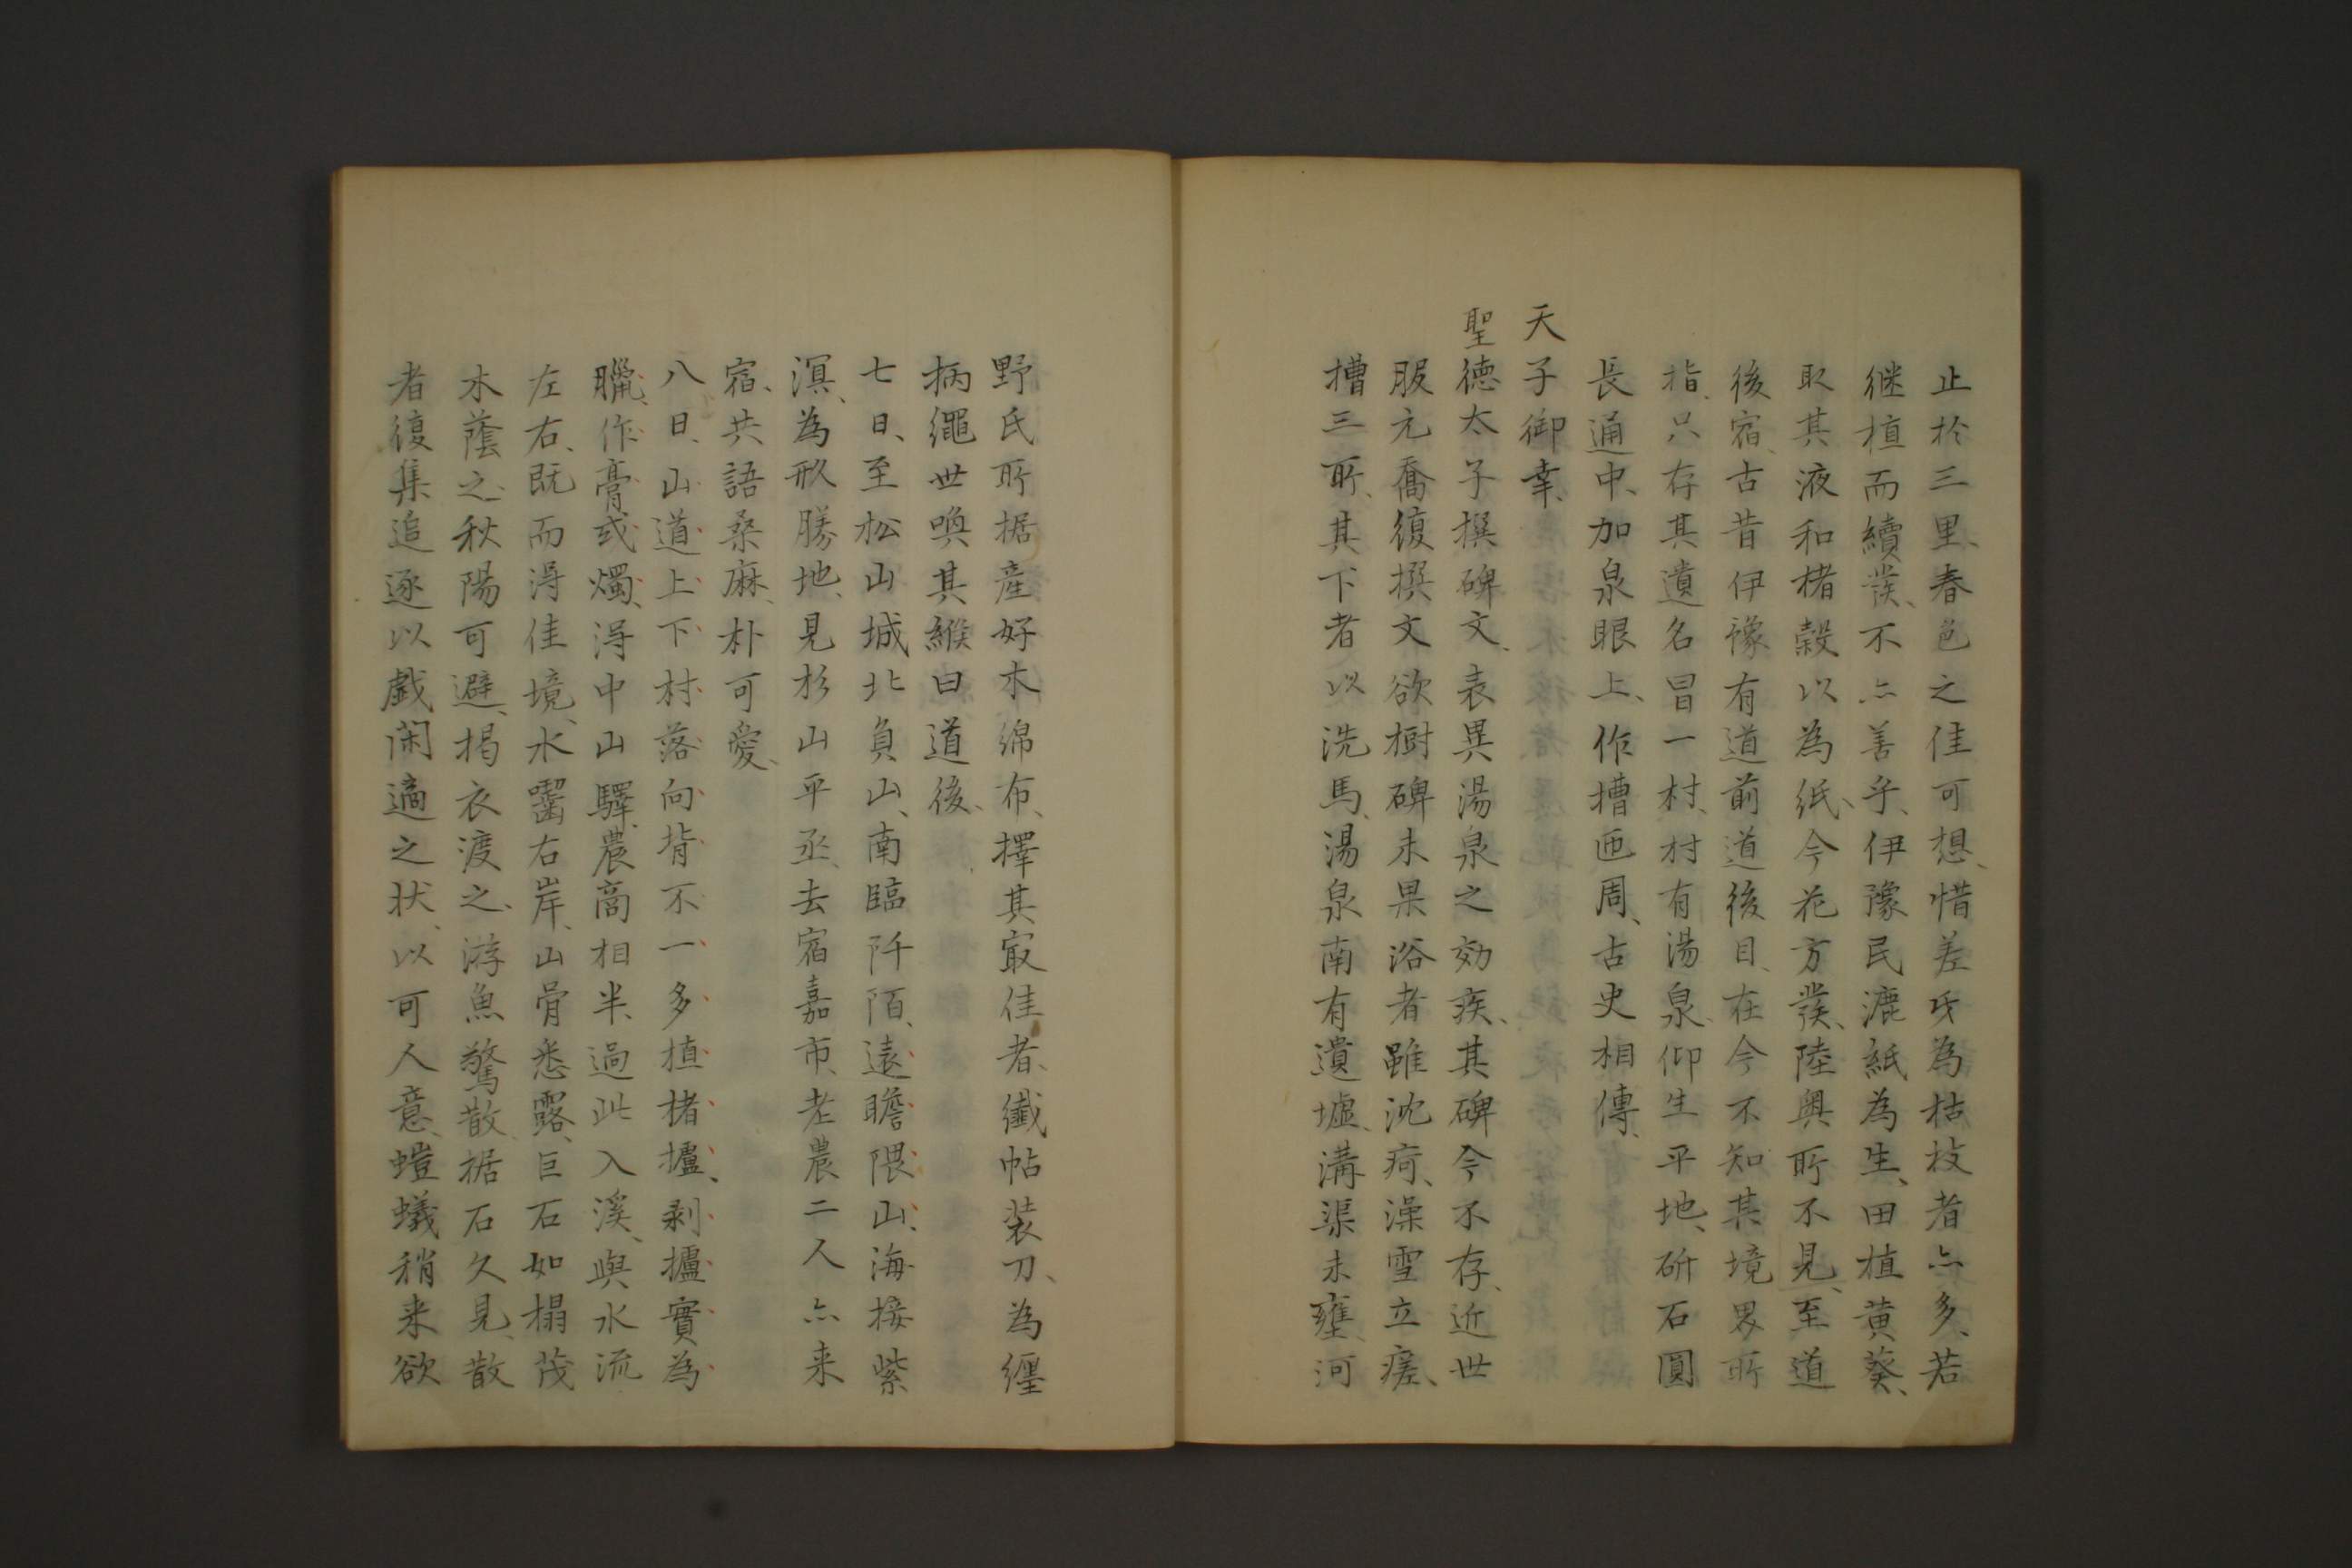 止於三里、春色之佳可想、惜差氐為枯枝者亦多、若
継植而續發、不亦善乎、伊豫民漉紙為生、田植黄葵、
取其液和楮穀以為紙、今花方發、陸奥所不見、至道
後宿、古昔伊豫有道前道後目、在今不知其境界所
指、只存其遺名冒一村、村有湯泉、仰生平地、斫石圓
長通中、加泉眼上、作槽匝周、古史相傳、
天子御幸、
聖德太子撰碑文、表異湯泉之効疾、其碑今不存、近世
服元喬復撰文欲樹碑未果浴者雖沈痾、澡雪立瘥、
槽三所、其下者以洗馬、湯泉南有遺墟、溝渠未壅、河
野氏所據産好木綿布、擇其㝡佳者、纎帖装刀、為纒
柄繩世喚其緱曰道後、
七日、至松山城北負山、南臨阡陌、遠瞻隈山、海接紫
溟、為形勝地、見杉山平丞、去宿嘉市、老農二人亦来
宿、共語桑麻、朴可愛、
八日、山道上下村落向背不一多植楮櫨、剥櫨實為
臘、作膏或燭、得中山驛、農商相半、過此入溪、與水流
左右、既而得佳境、水齧右岸、山骨悉露、巨石如榻茂
木蔭之、秋陽可避、掲衣渡之、游魚驚散、据石久見、散
者復集追逐以戯閑適之状、以可人意、螘蟻稍来欲